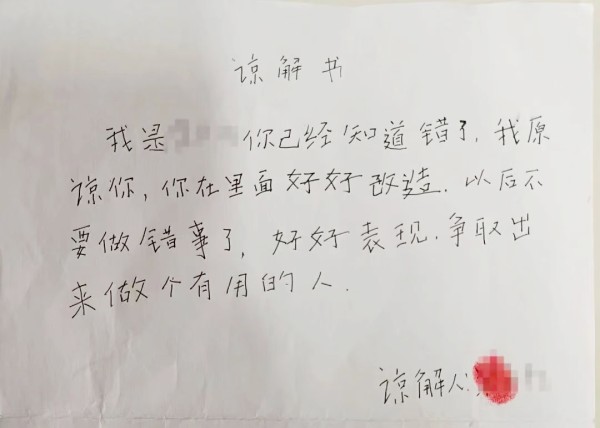 谅解书
我是 你已经知道错了,我原
谅你,你在里面好好改造.以后不
要做错事了,好好表现.争取出
来做个有用的人.
谅解人: